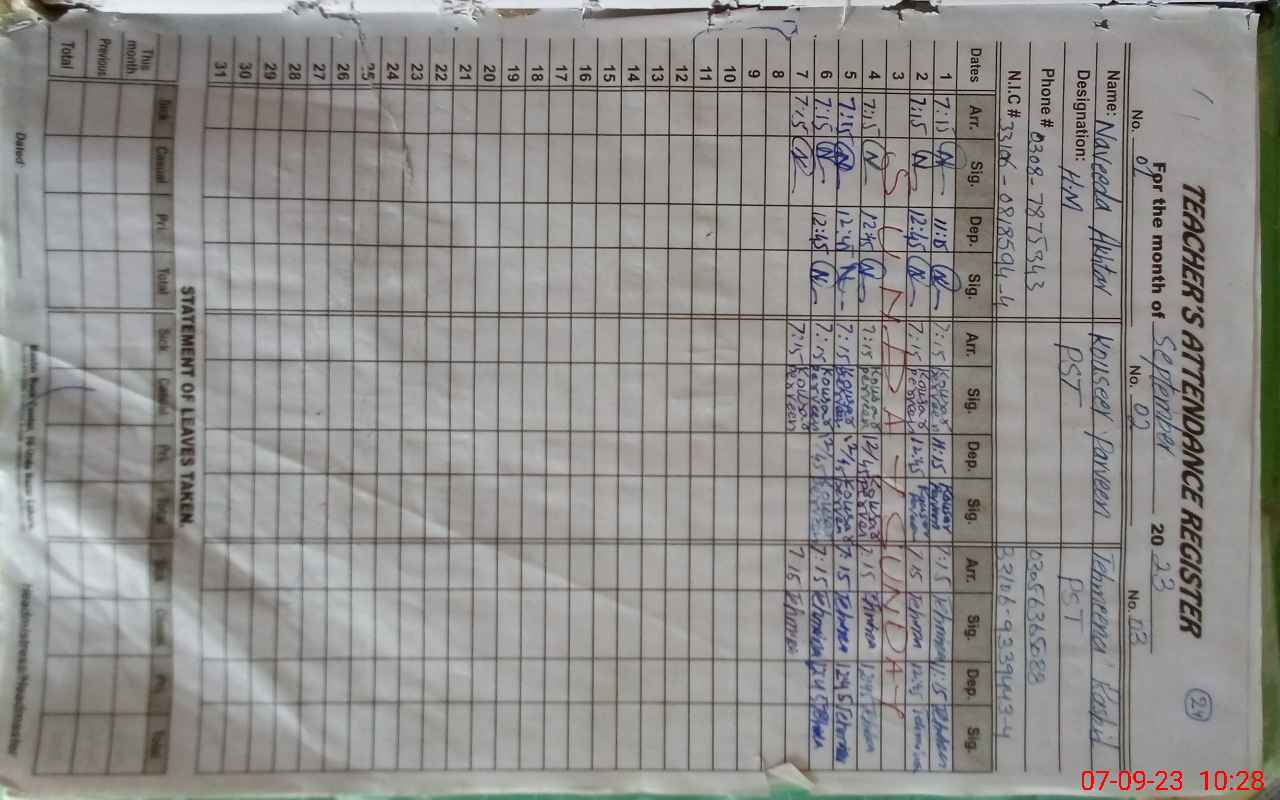 24
TEACHER'S ATTENDANCE REGISTER
For the month of September 2023
No. 01 No. 02 No. 03
Name: Naveeda Akhtar Kouseer Parveen Tehmeena
Designation: H.M PST PST
Phone # 0308-7875343 03056365088
N.I.C # 33106-0818594-4
Dates Arr. Sig. Dep. Sig. Arr. Sig. Dep. Sig. Arr. Sig. Dep. Sig.
1 7:15 N 11:15 N 7:15 Kousar Parveen 11:15 Kousar Parveen 7:15 11:15
2 7:15 N 12:45 N 7:15 Kousar Parveen 12:45 Kousar Parveen 7:15 12:45
3 SUNDAY SUNDAY
4 7:15 N 12:45 N 7:15 Kousar Parveen 12/45 Kousar Parveen 7:15 12:45
5 7:15 N 12:45 N 7:15 Kousar Parveen 12/45 Kousar Parveen 7:15 12:45
6 7:15 N 12:45 N 7:15 Kousar Parveen 12/45 Kousar Parveen 7:15 12:45
7 7:15 N 7:15 Kousar Parveen 7:15
8
9
10
11
12
13
14
15
16
17
18
19
20
21
22
23
24
25
26
27
28
29
30
31
STATEMENT OF LEAVES TAKEN.
Sick Casual Pri. Total Sick Casual Pri. Total Sick Casual Pri. Total
This month
Previous
Total
Dated Headmistress/Headmaster
07-09-23 10:28